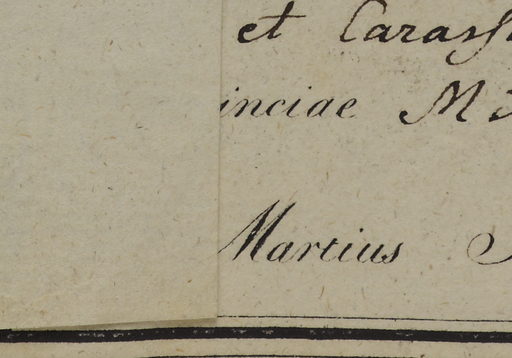 et Carass
inciae M
Martius